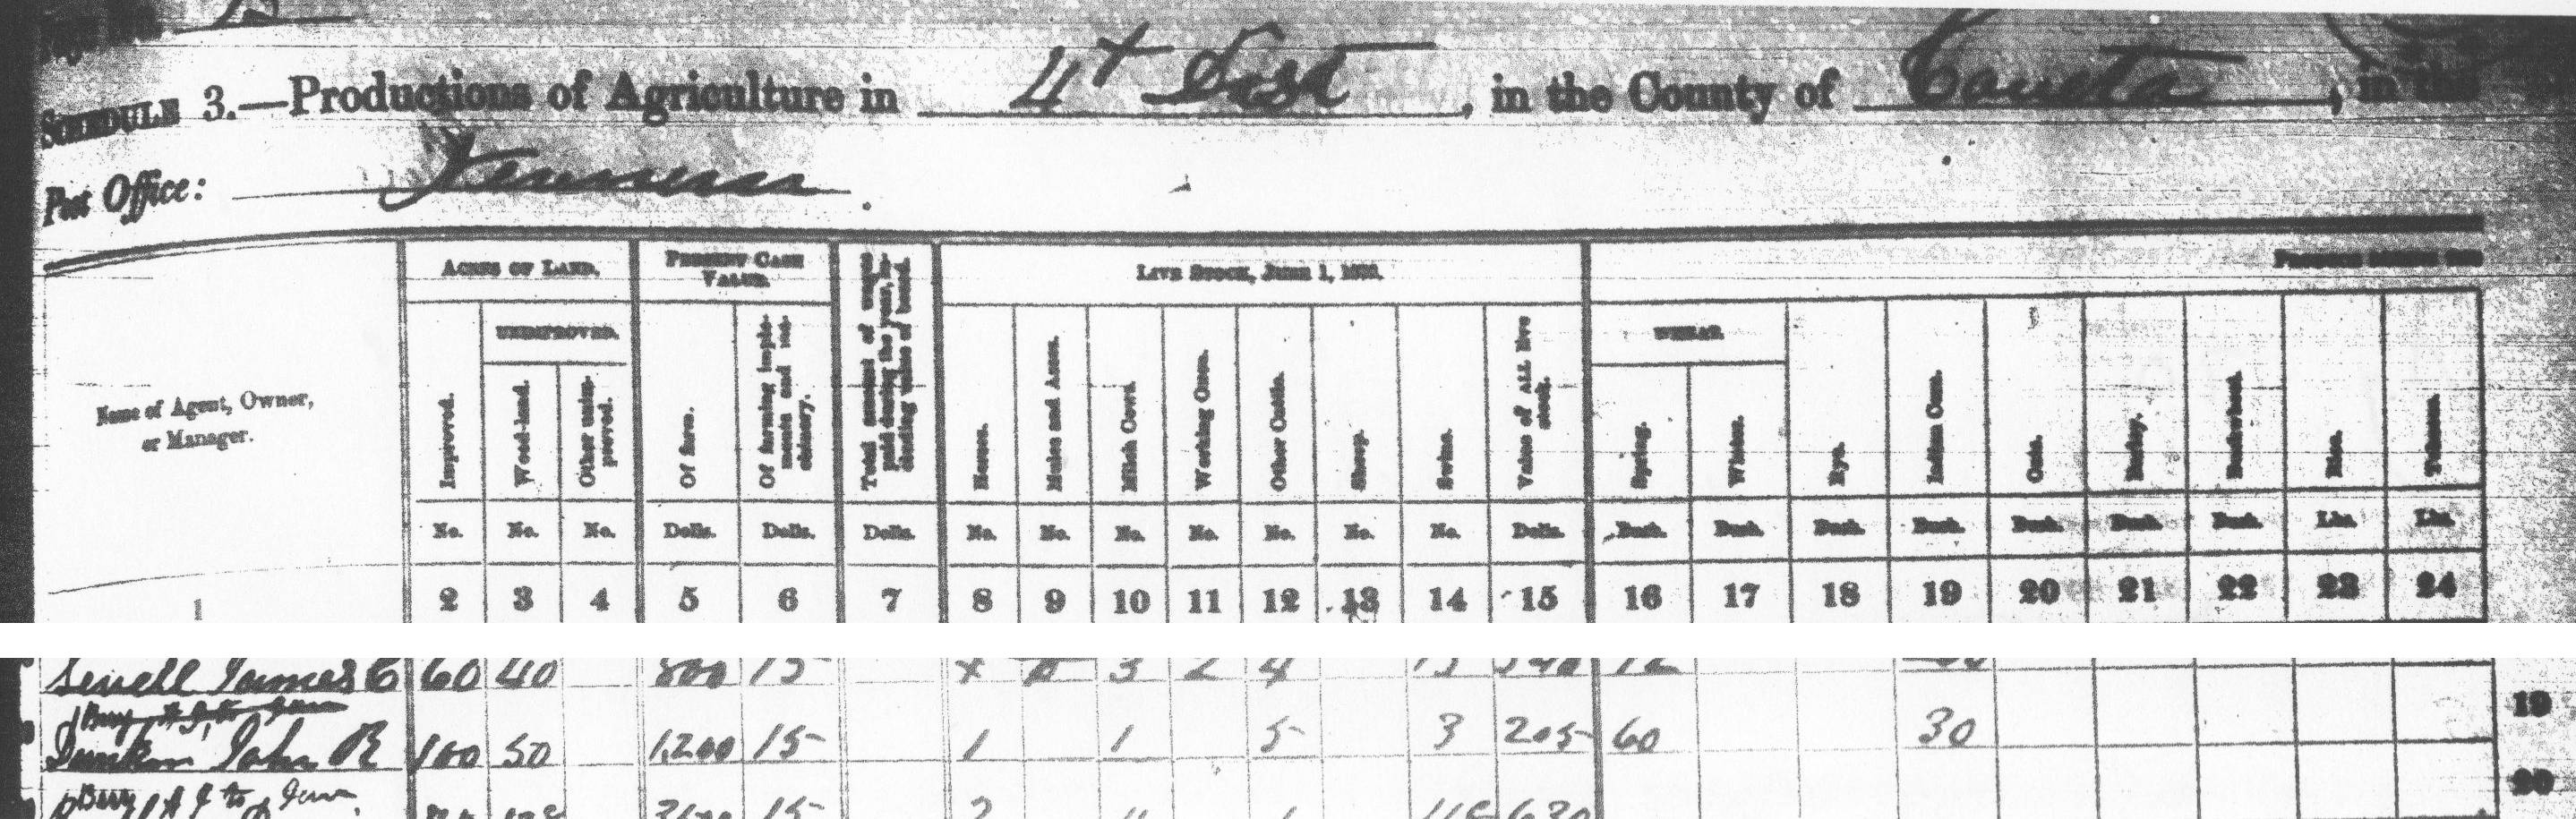 SCHEDULE 3.—Productions of Agriculture in 4t Dist, in the County of Coweta, in the
Post Office:
ACRES OF LAND.
PRESENT CASH VALUE.
Total amount of wages paid during the year, including value of board.
LIVE STOCK, June 1, 1870.
Name of Agent, Owner, or Manager.
Improved.
UNIMPROVED.
Wood-land.
Other unimproved.
Of farm.
Of farming implements and machinery.
Horses.
Mules and Asses.
Milch Cows.
Working Oxen.
Other Cattle.
Sheep.
Swine.
Value of ALL live stock.
WHEAT.
Spring.
Winter.
Rye.
Indian Corn.
Oats.
Barley.
Buckwheat.
Rice.
Tobacco.
No. No. No. Dolls. Dolls. Dolls. No. No. No. No. No. No. No. Dolls. Bush. Bush. Bush. Bush. Bush. Bush. Bush. Lbs. Lbs.
1 2 3 4 5 6 7 8 9 10 11 12 13 14 15 16 17 18 19 20 21 22 23 24
Sewell James C 60 40 800 15 3 2 4 19
Dunken John R 100 50 1200 15 1 1 5 3 205 60 30 20
15 2 1 630